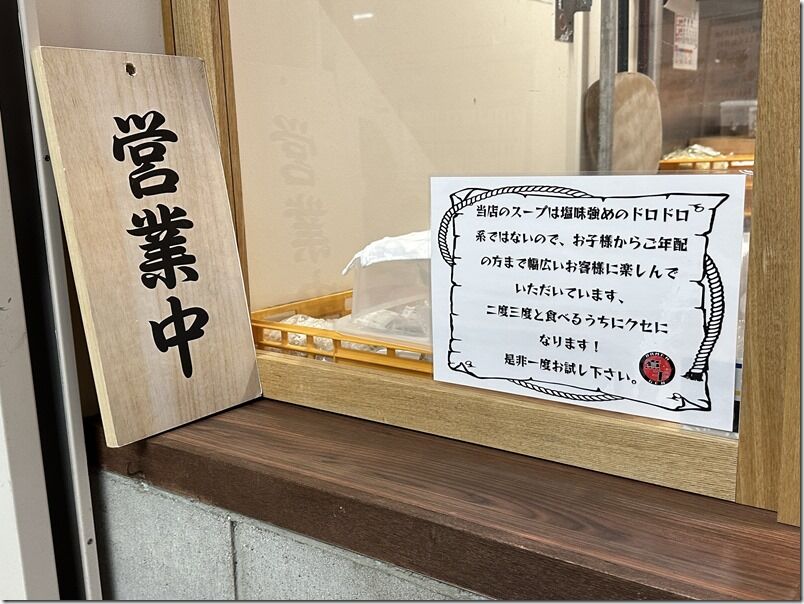 営業中
当店のスープは塩味強めのドロドロ
系ではないので、お子様からご年配
の方まで幅広いお客様に楽しんで
いただいています、
二度三度と食べるうちにクセに
なります！
是非一度お試し下さい。